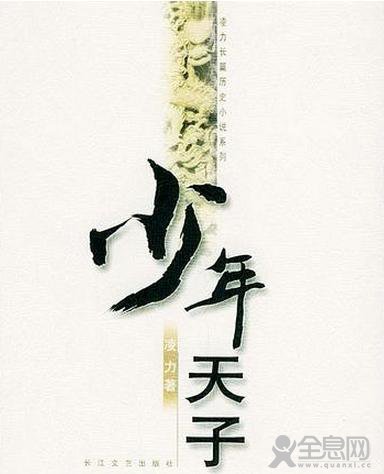 凌力长篇历史小说系列
少年天子
凌力著
长江文艺出版社
全息网
www.quanxi.cc